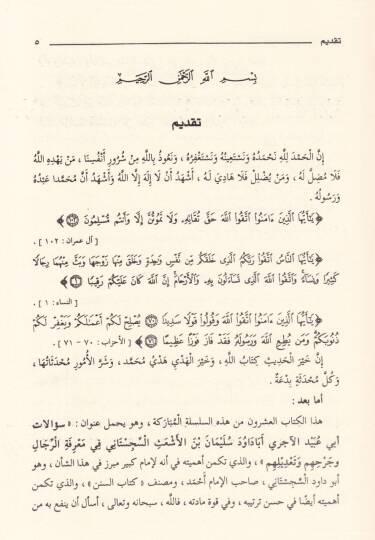 تقديم ٥
بِسْمِ اللَّهِ الرَّحْمَنِ الرَّحِيمِ
تقديم
إِنَّ الْحَمْدَ لِلَّهِ نَحْمَدُهُ وَنَسْتَعِينُهُ وَنَسْتَغْفِرُهُ ، وَنَعُوذُ بِاللَّهِ مِنْ شُرُورِ أَنْفُسِنَا ، مَنْ يَهْدِهِ اللَّهُ
فَلَا مُضِلَّ لَهُ ، وَمَنْ يُضْلِلْ فَلَا هَادِيَ لَهُ ، أَشْهَدُ أَنْ لَا إِلَهَ إِلَّا اللَّهُ وَأَشْهَدُ أَنَّ مُحَمَّدا عَبْدُهُ
وَرَسُولُهُ .
﴿ يَٰٓأَيُّهَا ٱلَّذِينَ ءَامَنُوا۟ ٱتَّقُوا۟ ٱللَّهَ حَقَّ تُقَاتِهِۦ وَلَا تَمُوتُنَّ إِلَّا وَأَنتُم مُّسْلِمُونَ ﴿١٠٢﴾ ﴾
[ آل عمران : ١٠٢ ] .
﴿ يَٰٓأَيُّهَا ٱلنَّاسُ ٱتَّقُوا۟ رَبَّكُمُ ٱلَّذِى خَلَقَكُم مِّن نَّفْسٍ وَٰحِدَةٍ وَخَلَقَ مِنْهَا زَوْجَهَا وَبَثَّ مِنْهُمَا رِجَالًا
كَثِيرًا وَنِسَآءً وَٱتَّقُوا۟ ٱللَّهَ ٱلَّذِى تَسَآءَلُونَ بِهِۦ وَٱلْأَرْحَامَ إِنَّ ٱللَّهَ كَانَ عَلَيْكُمْ رَقِيبًا ﴿١﴾ ﴾
[ النساء : ١ ] .
﴿ يَٰٓأَيُّهَا ٱلَّذِينَ ءَامَنُوا۟ ٱتَّقُوا۟ ٱللَّهَ وَقُولُوا۟ قَوْلًا سَدِيدًا ﴿٧٠﴾ يُصْلِحْ لَكُمْ أَعْمَٰلَكُمْ وَيَغْفِرْ لَكُمْ
ذُنُوبَكُمْ وَمَن يُطِعِ ٱللَّهَ وَرَسُولَهُۥ فَقَدْ فَازَ فَوْزًا عَظِيمًا ﴿٧١﴾ ﴾ [ الأحزاب : ٧٠ - ٧١ ] .
إِنَّ خَيْرَ الْحَدِيثِ كِتَابُ اللَّهِ ، وَخَيْرَ الْهَدْيِ هَدْيُ مُحَمَّد ، وَشَرَّ الأُمُورِ مُحْدَثَاتُهَا ،
وَكُلَّ مُحْدَثَةٍ بِدْعَةٌ .
أما بعد :
هذا الكتاب العشرون من هذه السلسلة الْمُبَارَكة ، وهو يحمل عنوان : « سؤالات
أبي عُبَيد الآجري أَبَادَاوُدَ سُلَيْمَانَ بْنَ الأَشْعَثِ السِّجِسْتَانِي فِي مَعْرِفَةِ الرِّجَالِ
وجَرْحِهِم وَتَعْدِيلِهِم » ، والذي تكمن أهميته في أنه لإمام كبير مبرز في هذا الشأن ، وهو
أبو داود السِّجِسْتَانِي ، صاحب الإمام أَحْمَد ، ومصنف « كتاب السنن » ، والذي تكمن
أهميته أيضًا في حسن ترتيبه ، وفي قوة مادته ، فاللَّه ، سبحانه وتعالى ، أسأل أن ينفع به من